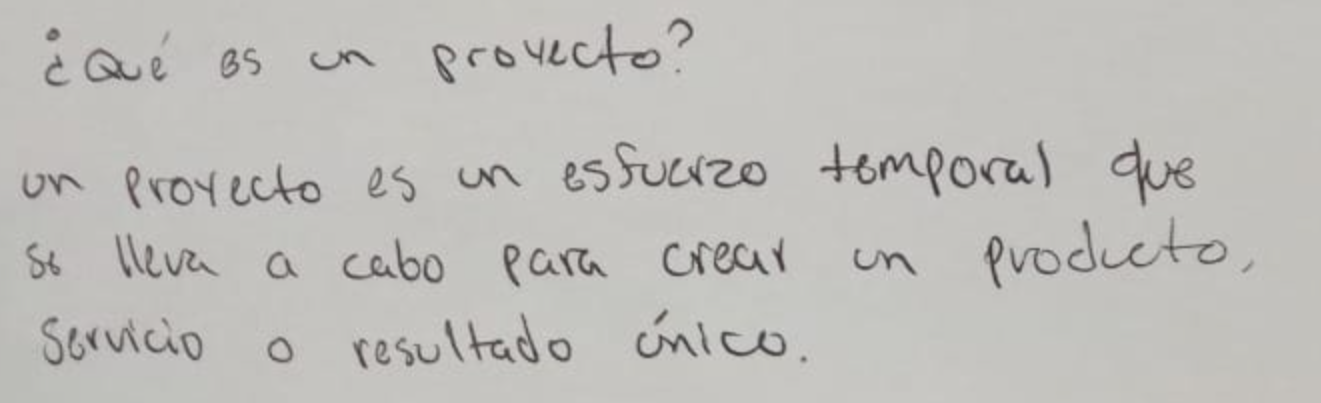 ¿Qué es un proyecto?
un proyecto es un esfuerzo temporal que
se lleva a cabo para crear un producto,
servicio o resultado único.